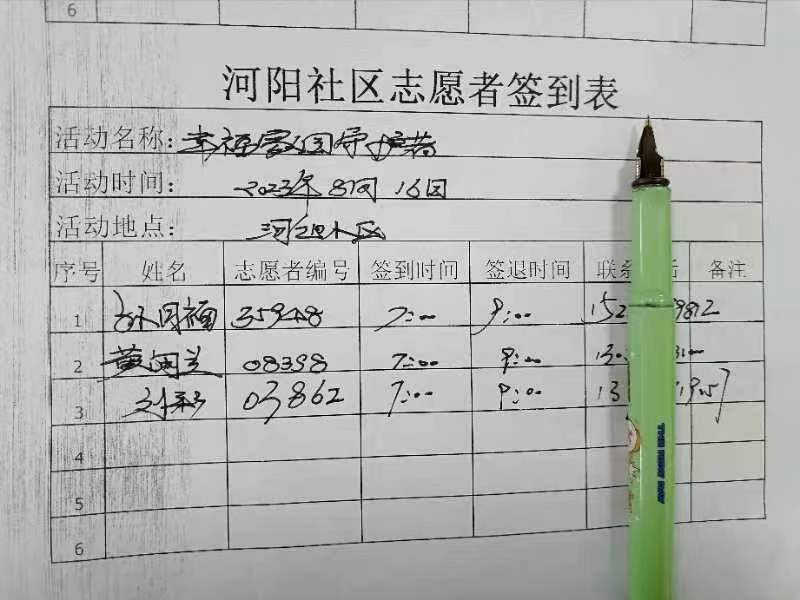 6
河阳社区志愿者签到表
活动名称：幸福家园守护者
活动时间：2023年8月16日
活动地点：河阳小区
序号 姓名 志愿者编号 签到时间 签退时间 联系 备注
1 35948 7:00 9:00 152 9812
2 黄国兰 08398 7:00 9:00 130 3100
3 03862 7:00 9:00 13 1957
4
5
6